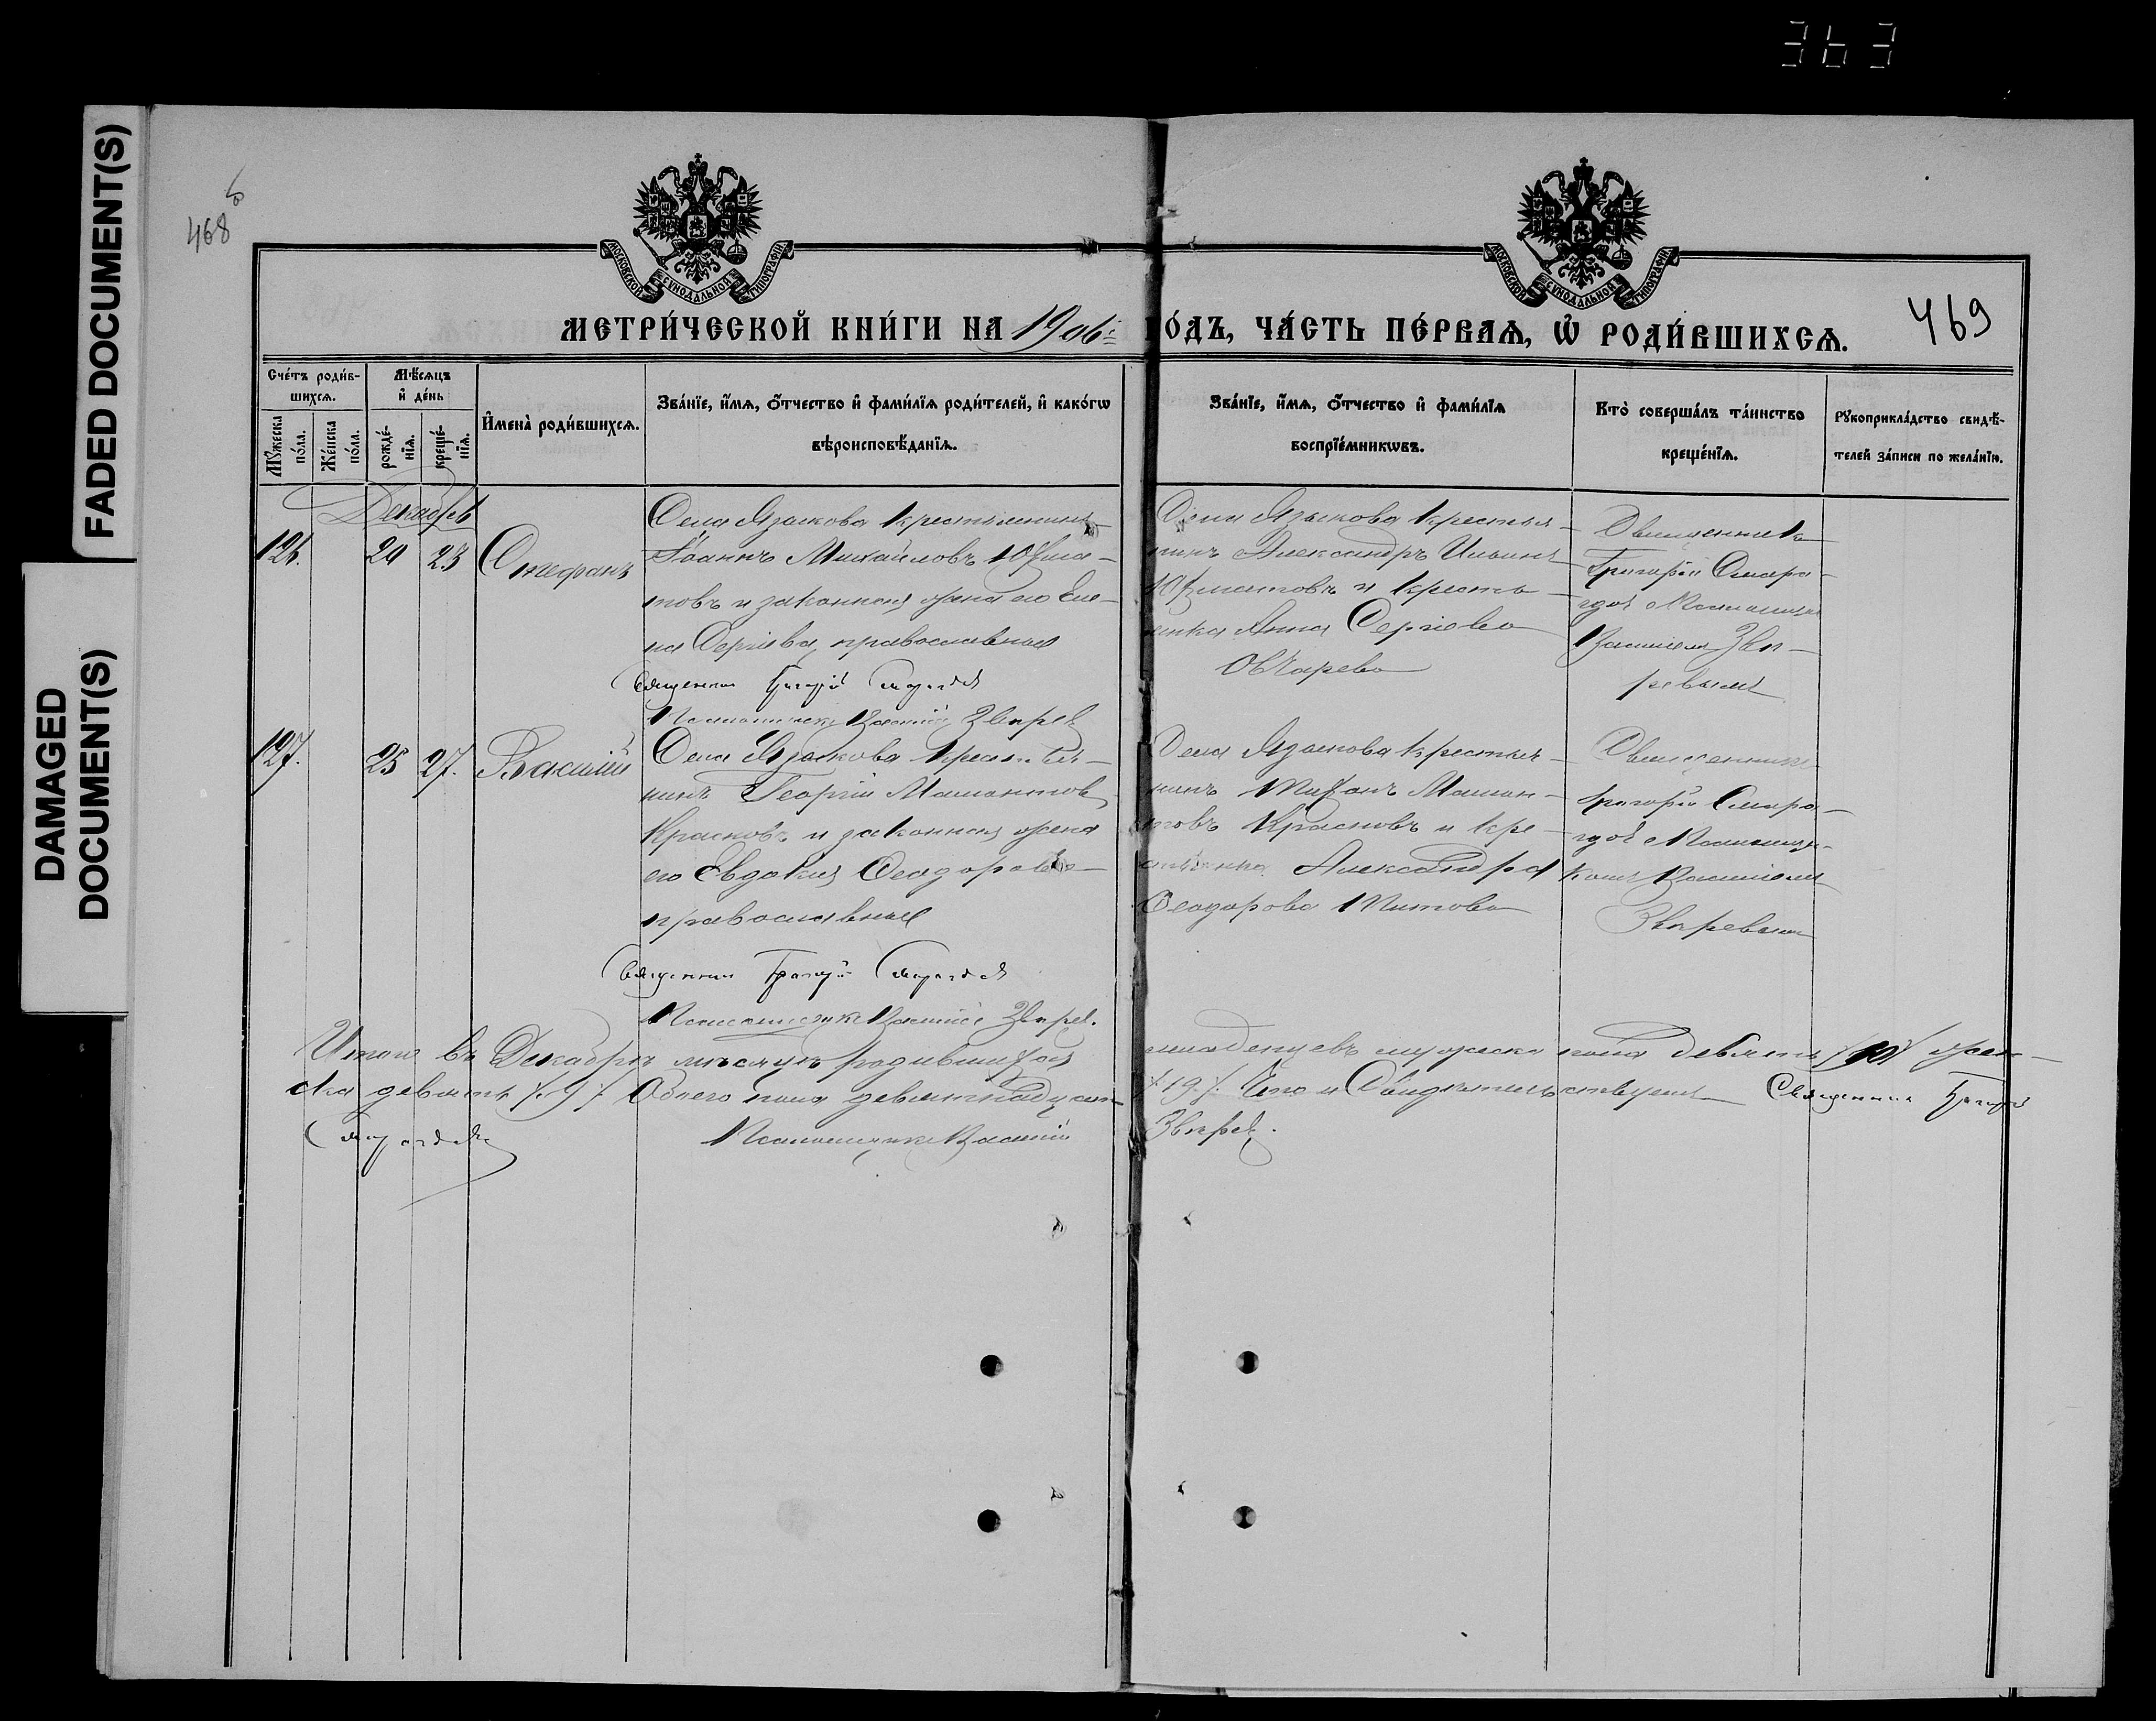 363
FADED DOCUMENT(S)
DAMAGED
DOCUMENT(S)
468
469
МОСКОВСКОЙ СУНОДАЛЬНОЙ ТИПОГРАФІИ
МОСКОВСКОЙ СУНОДАЛЬНОЙ ТИПОГРАФІИ
МЕТРИ́ЧЕСКОЙ КНИ́ГИ НА 1906 г.
О́ДЪ, ЧА́СТЬ ПЕ́РВАѦ, Ѡ҆ РОДИ́ВШИХСѦ.
Сче́тъ роди́в-
шихсѧ.
Мꙋ́жеска по́ла.
Же́нска по́ла.
Мѣ́сѧцъ
и҆ де́нь
рожде́-
нїѧ.
креще́-
нїѧ.
И҆мена̀ роди́вшихсѧ.
Зва́нїе, и҆́мѧ, ѻ҆́тчество и҆ фами́лїѧ роди́телей, и҆ како́гѡ
вѣроисповѣ́данїѧ.
Зва́нїе, и҆́мѧ, ѻ҆́тчество и҆ фами́лїѧ
воспрїе́мникѡвъ.
Кто̀ соверша́лъ та́инство
креще́нїѧ.
Рꙋкоприкла́дство свидѣ́-
телей за́писи по жела́нїю.
Декабрь
126. 20 23 Стефанъ
Села Языкова крестьянинъ
Іоаннъ Михайловъ Юхма-
товъ и законная жена его Еле-
на Сергіева, православные
Священникъ Григорій Смарагдовъ
Псаломщикъ Василій Звѣревъ
Села Языкова крестья-
нинъ Александръ Ильинъ
Юхматовъ и кресть-
янка Анна Сергіева
Овчарева
Священникъ
Григорій Смара-
гдовъ Псаломщик
Василіем Звѣ-
ревымъ
127. 25 27. Василій
Села Языкова крестья-
нинъ Георгій Мамонтовъ
Красновъ и законная жена
его Евдокія Ѳеодорова
православные
Священникъ Григорій Смарагдовъ
Псаломщикъ Василій Звѣрев.
Села Языкова крестья-
нинъ Тихонъ Мамон-
товъ Красновъ и кре-
стьянка Александра
Ѳеодорова Титова
Священникъ
Григорій Смара-
гдовъ Псаломщи-
комъ Василіемъ
Звѣревымъ
Итого въ Декабрѣ мѣсяцѣ родившихся младенцевъ мужеска пола девять /10/ жен-
ска девять /9/ Обоего пола девятнадцать /19/. Что и Свидѣтельствуемъ Священникъ Григорій
Смарагдовъ Псаломщикъ Василій Звѣревъ.